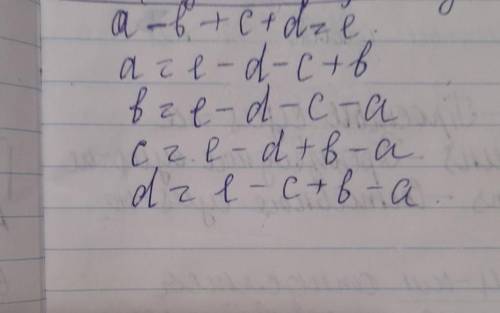 a - b + c + d = e
a = e - d - c + b
b = e - d - c - a
c = e - d + b - a
d = e - c + b - a